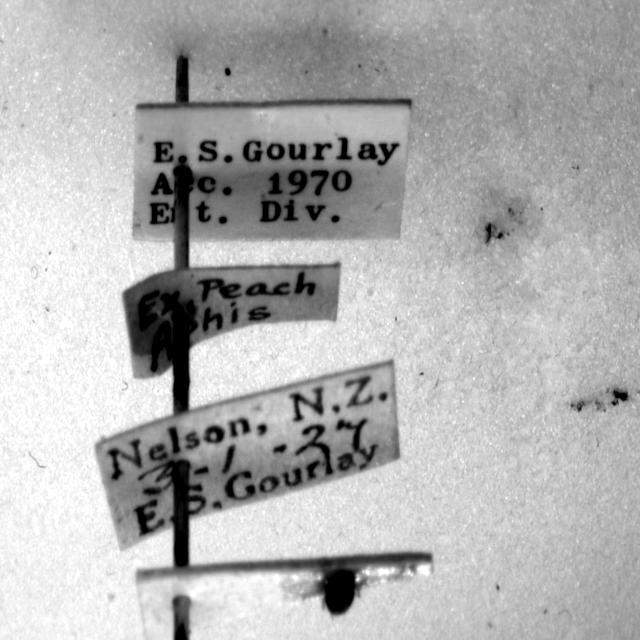 E.S.Gourlay
Acc. 1970
Ent. Div.
Ex Peach
Aphis
Nelson, N.Z.
3-1-27
E.S.Gourlay